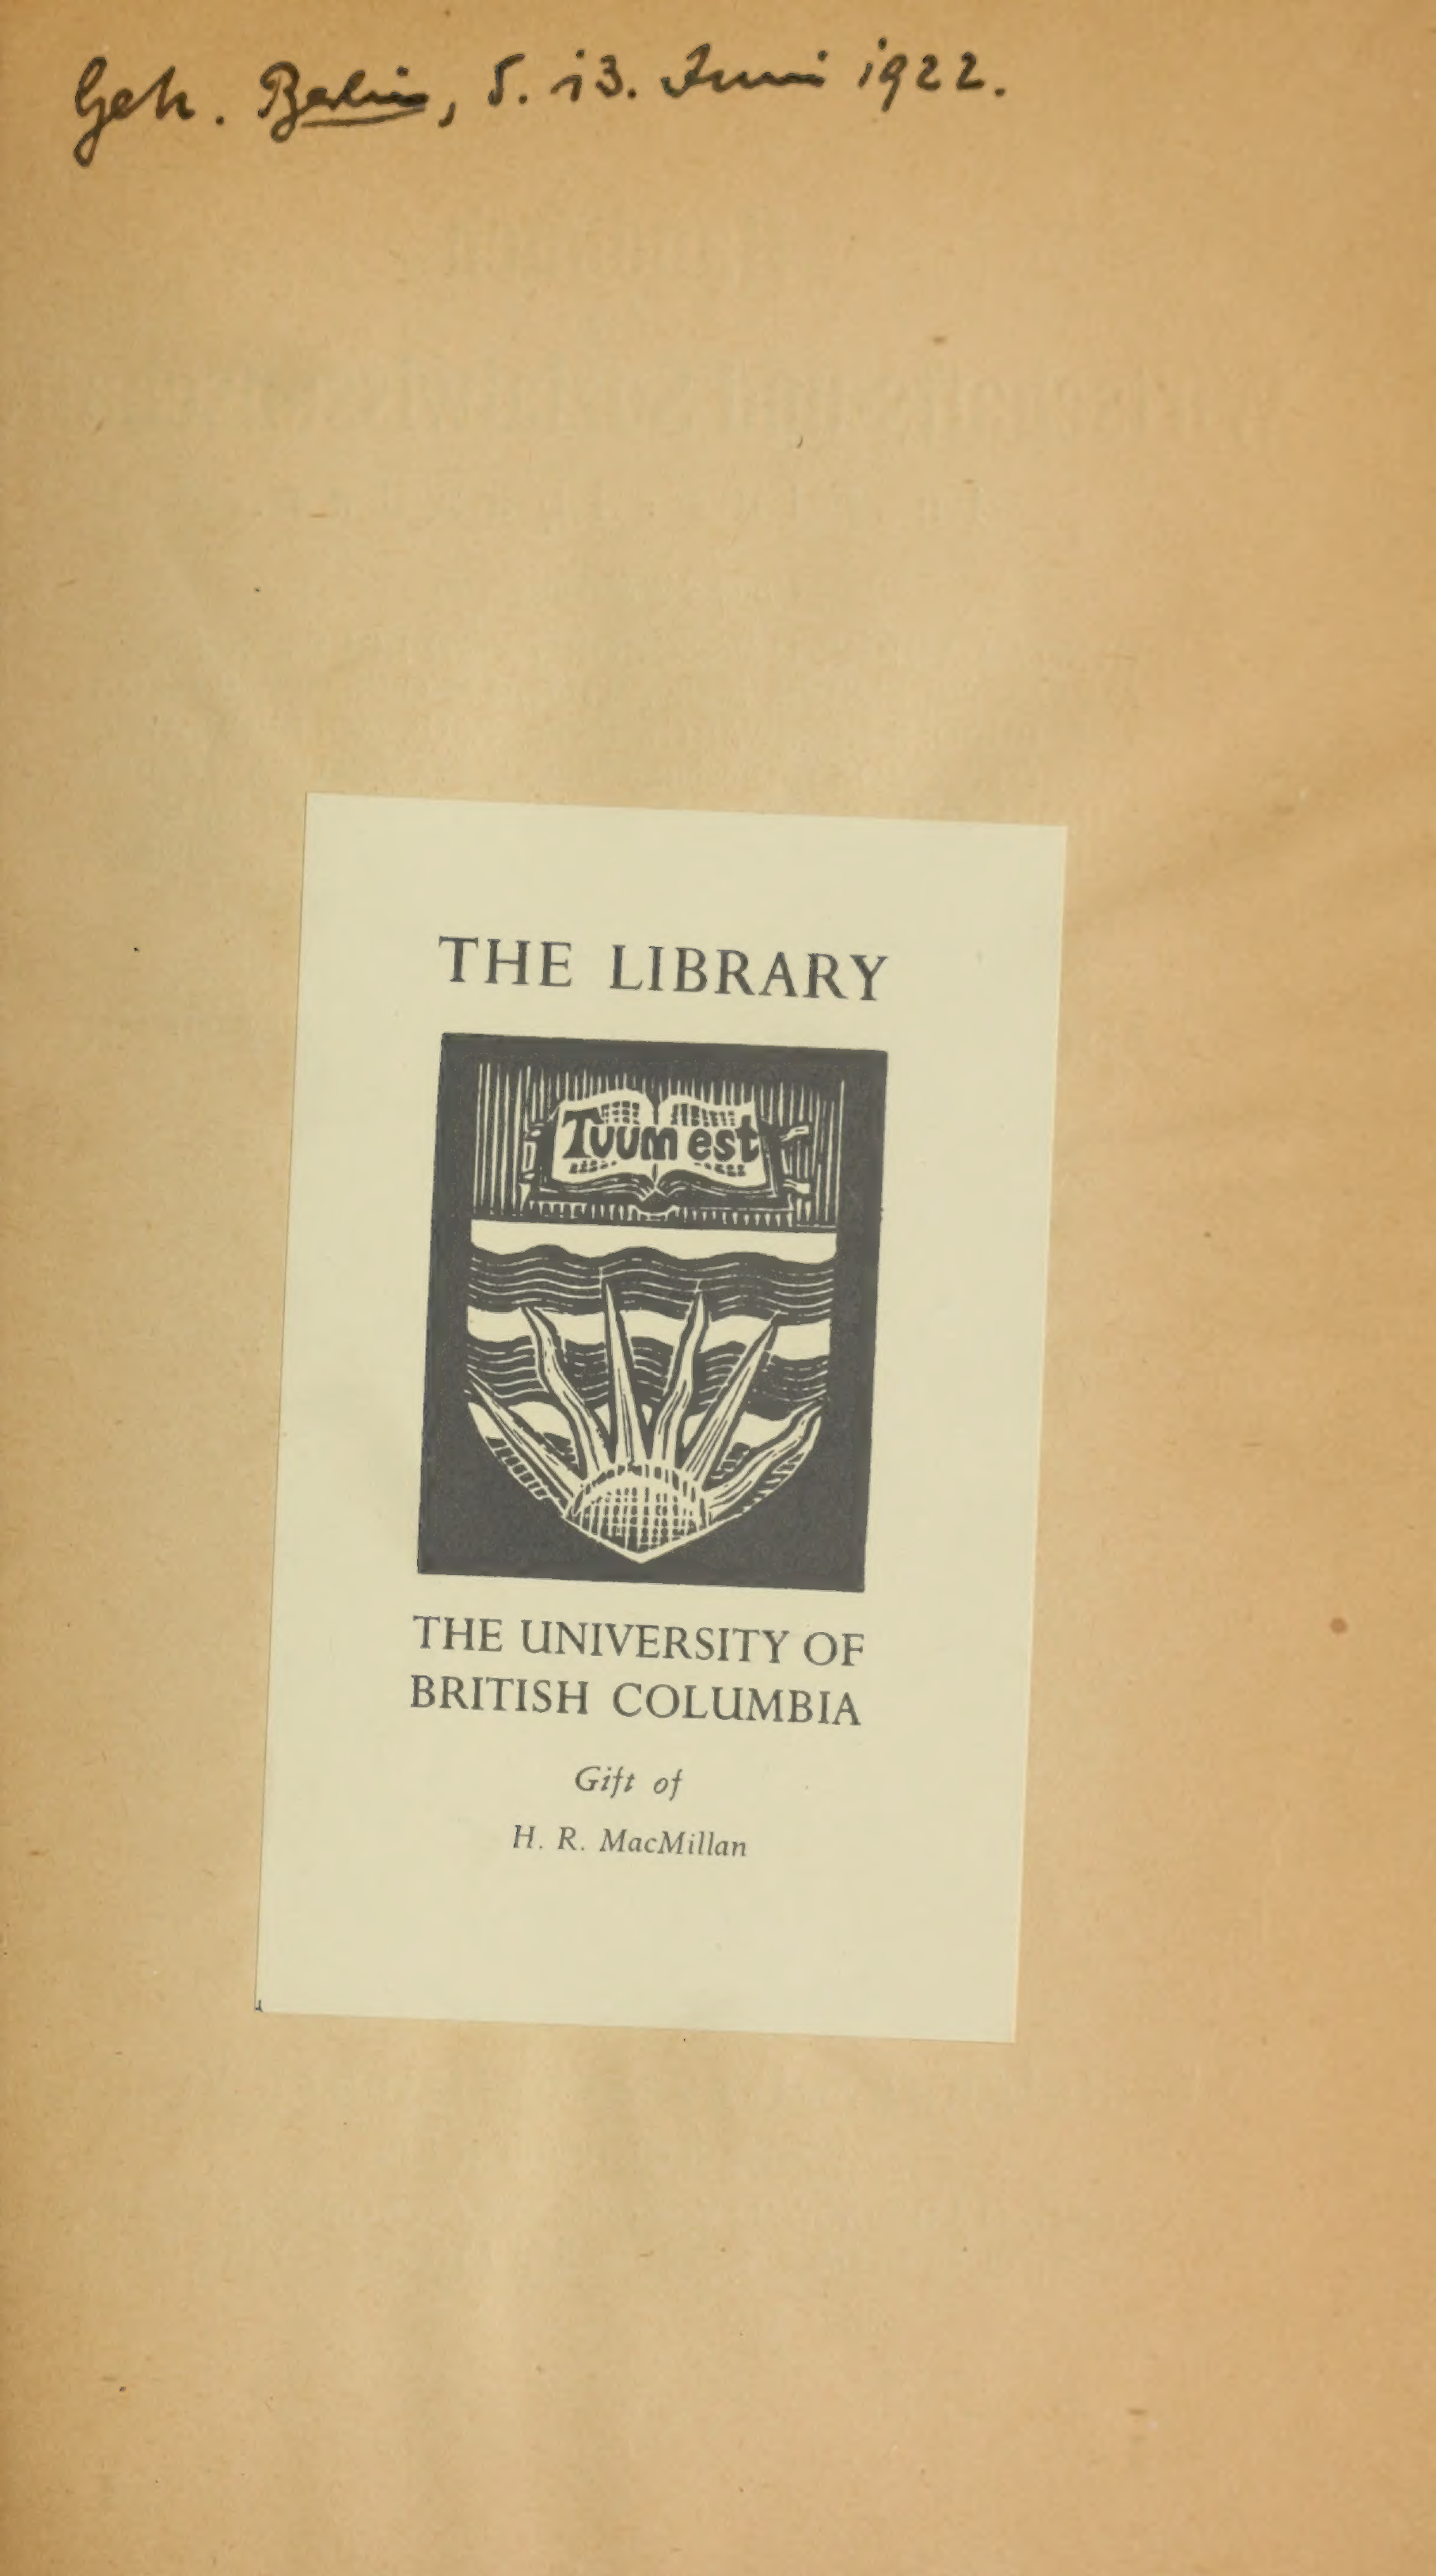 Geh. Berlin, 5. 13. Juni 1922.
THE LIBRARY
Tuum est
THE UNIVERSITY OF
BRITISH COLUMBIA
Gift of
H. R. MacMillan